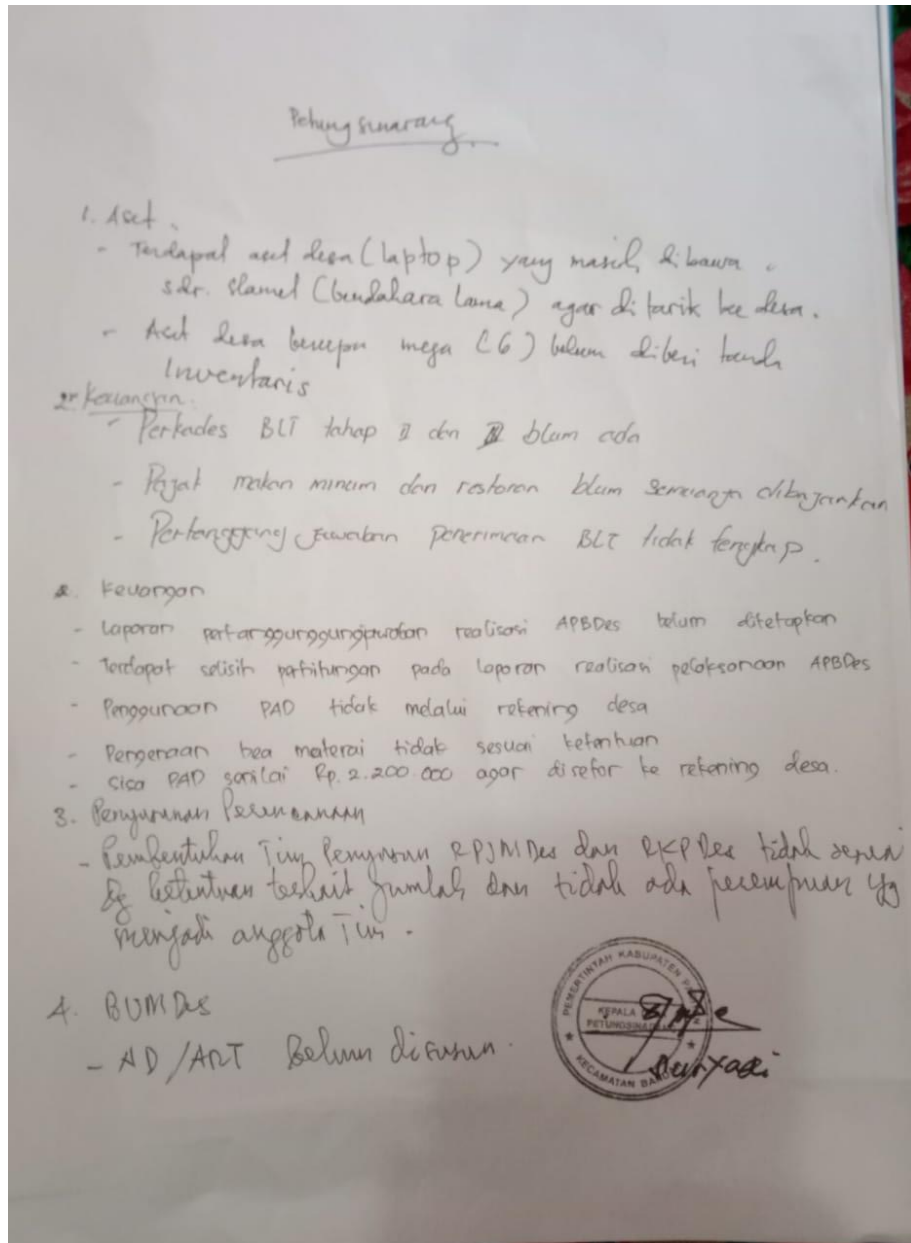 Petungsinarang
1. Aset.
- Terdapat aset desa (laptop) yang masih dibawa
sdr. Slamet (bendahara lama) agar di tarik ke desa.
- Aset desa berupa meja (6) belum diberi tanda
Inventaris
2. Keuangan.
- Perkades BLT tahap II dan blum ada
- Pajak makan minum dan restoran blum semuanya dibayarkan
- Pertanggung jawaban penerimaan BLT tidak lengkap.
2. Keuangan
- Laporan pertanggunggungjawaban realisasi APBDes belum ditetapkan
- Terdapat selisih perhitungan pada laporan realisasi pelaksanaan APBDes
- Penggunaan PAD tidak melalui rekening desa
- Pengenaan bea materai tidak sesuai ketentuan
- Sisa PAD senilai Rp. 2.200.000 agar disetor ke rekening desa.
3. Penyusunan Perencanaan
- Pembentukan Tim Penyusun RPJMDes dan RKPDes tidak sesuai
dg ketentuan terkait jumlah dan tidak ada perempuan yg
menjadi anggota Tim.
4. BUMDes
- AD/ART Belum disusun.
PEMERINTAH KABUPATEN
KEPALA
PETUNGSINA
KECAMATAN BAN